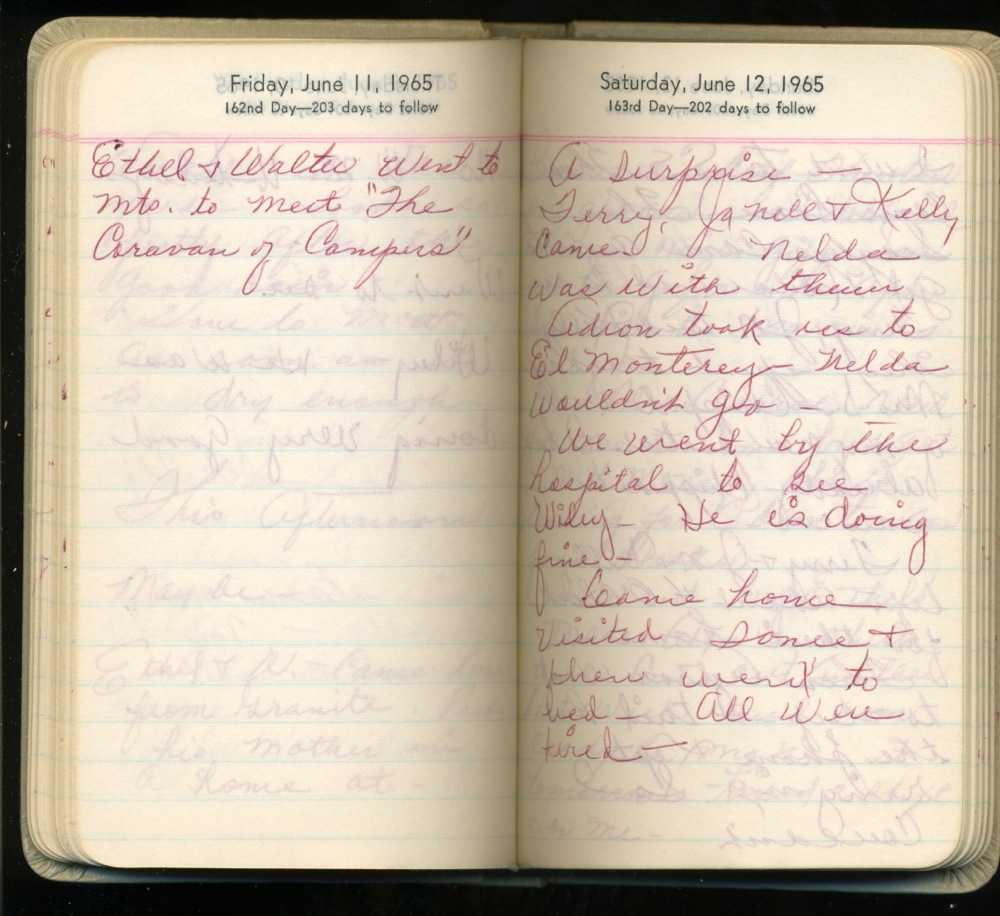 Friday, June 11, 1965
162nd Day—203 days to follow
Ethel & Walter Went to
Mts. to meet "The
Caravan of Campers"
Saturday, June 12, 1965
163rd Day—202 days to follow
A Surprise —
Terry, Janell & Kelly
Came. Nelda
was with them
Adron took us to
El Monterey — Nelda
Wouldn't go —
We went by the
hospital to see
Wiley — He is doing
fine —
Came home
Visited some &
then went to
bed — All Were
tired —